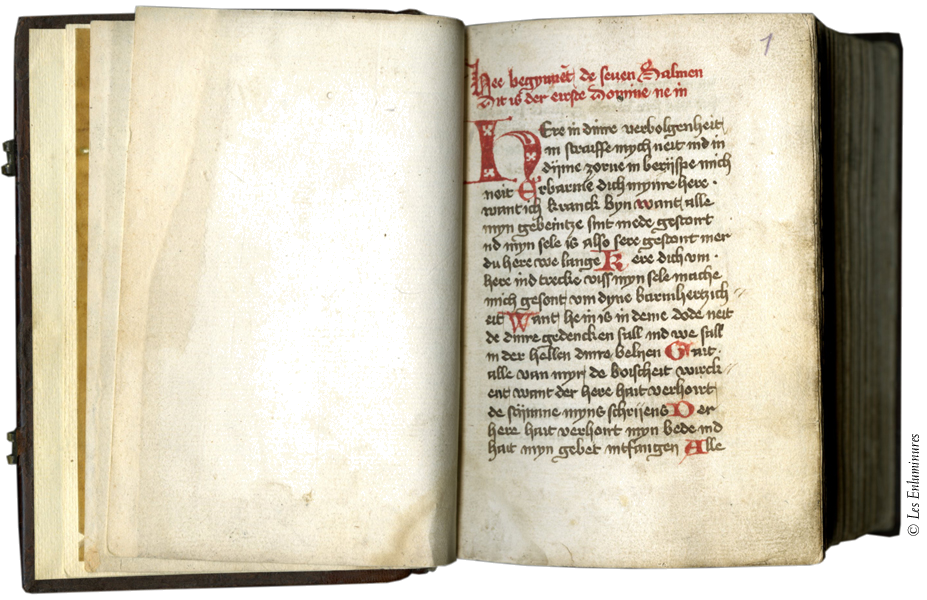 1
Hee begynnet de seven Salmen
Dit is der eirste Domine ne in
HEre in dinre verbolgenheit
in straiffe mych neit ind in
dijme zorne in berijspe mich
neit Erbarme dich mynre here ·
want ich kranck byn want alle
myn gebeintze sint mede gestoirt
nd myn sele is also sere gestoirt mer
du here we lange Kere dich vm ·
here ind trecke viss myn sele mache
mich gesont vm dyne barmhertzich
eit Want he in is in deme dode neit
de dinre gedencken sall ind we sall
in der hellen dinre beliien Gait ·
alle van myr de boischeit wirck
ent want der here hait verhoirt
de stijmme myns schrijens Der
here hait verhoirt myn bede ind
hait myn gebet intfangen Alle
© Les Enluminures